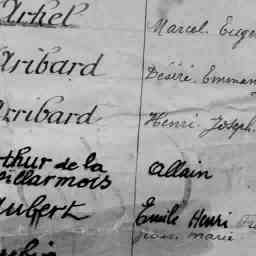 Arhel Marcel. Eugè
Aribard Désiré. Emman
Arribard Henri. Joseph.
Arthur de la Villarmois Allain
Aubert Emile Henri
Jean Marie
Aubin